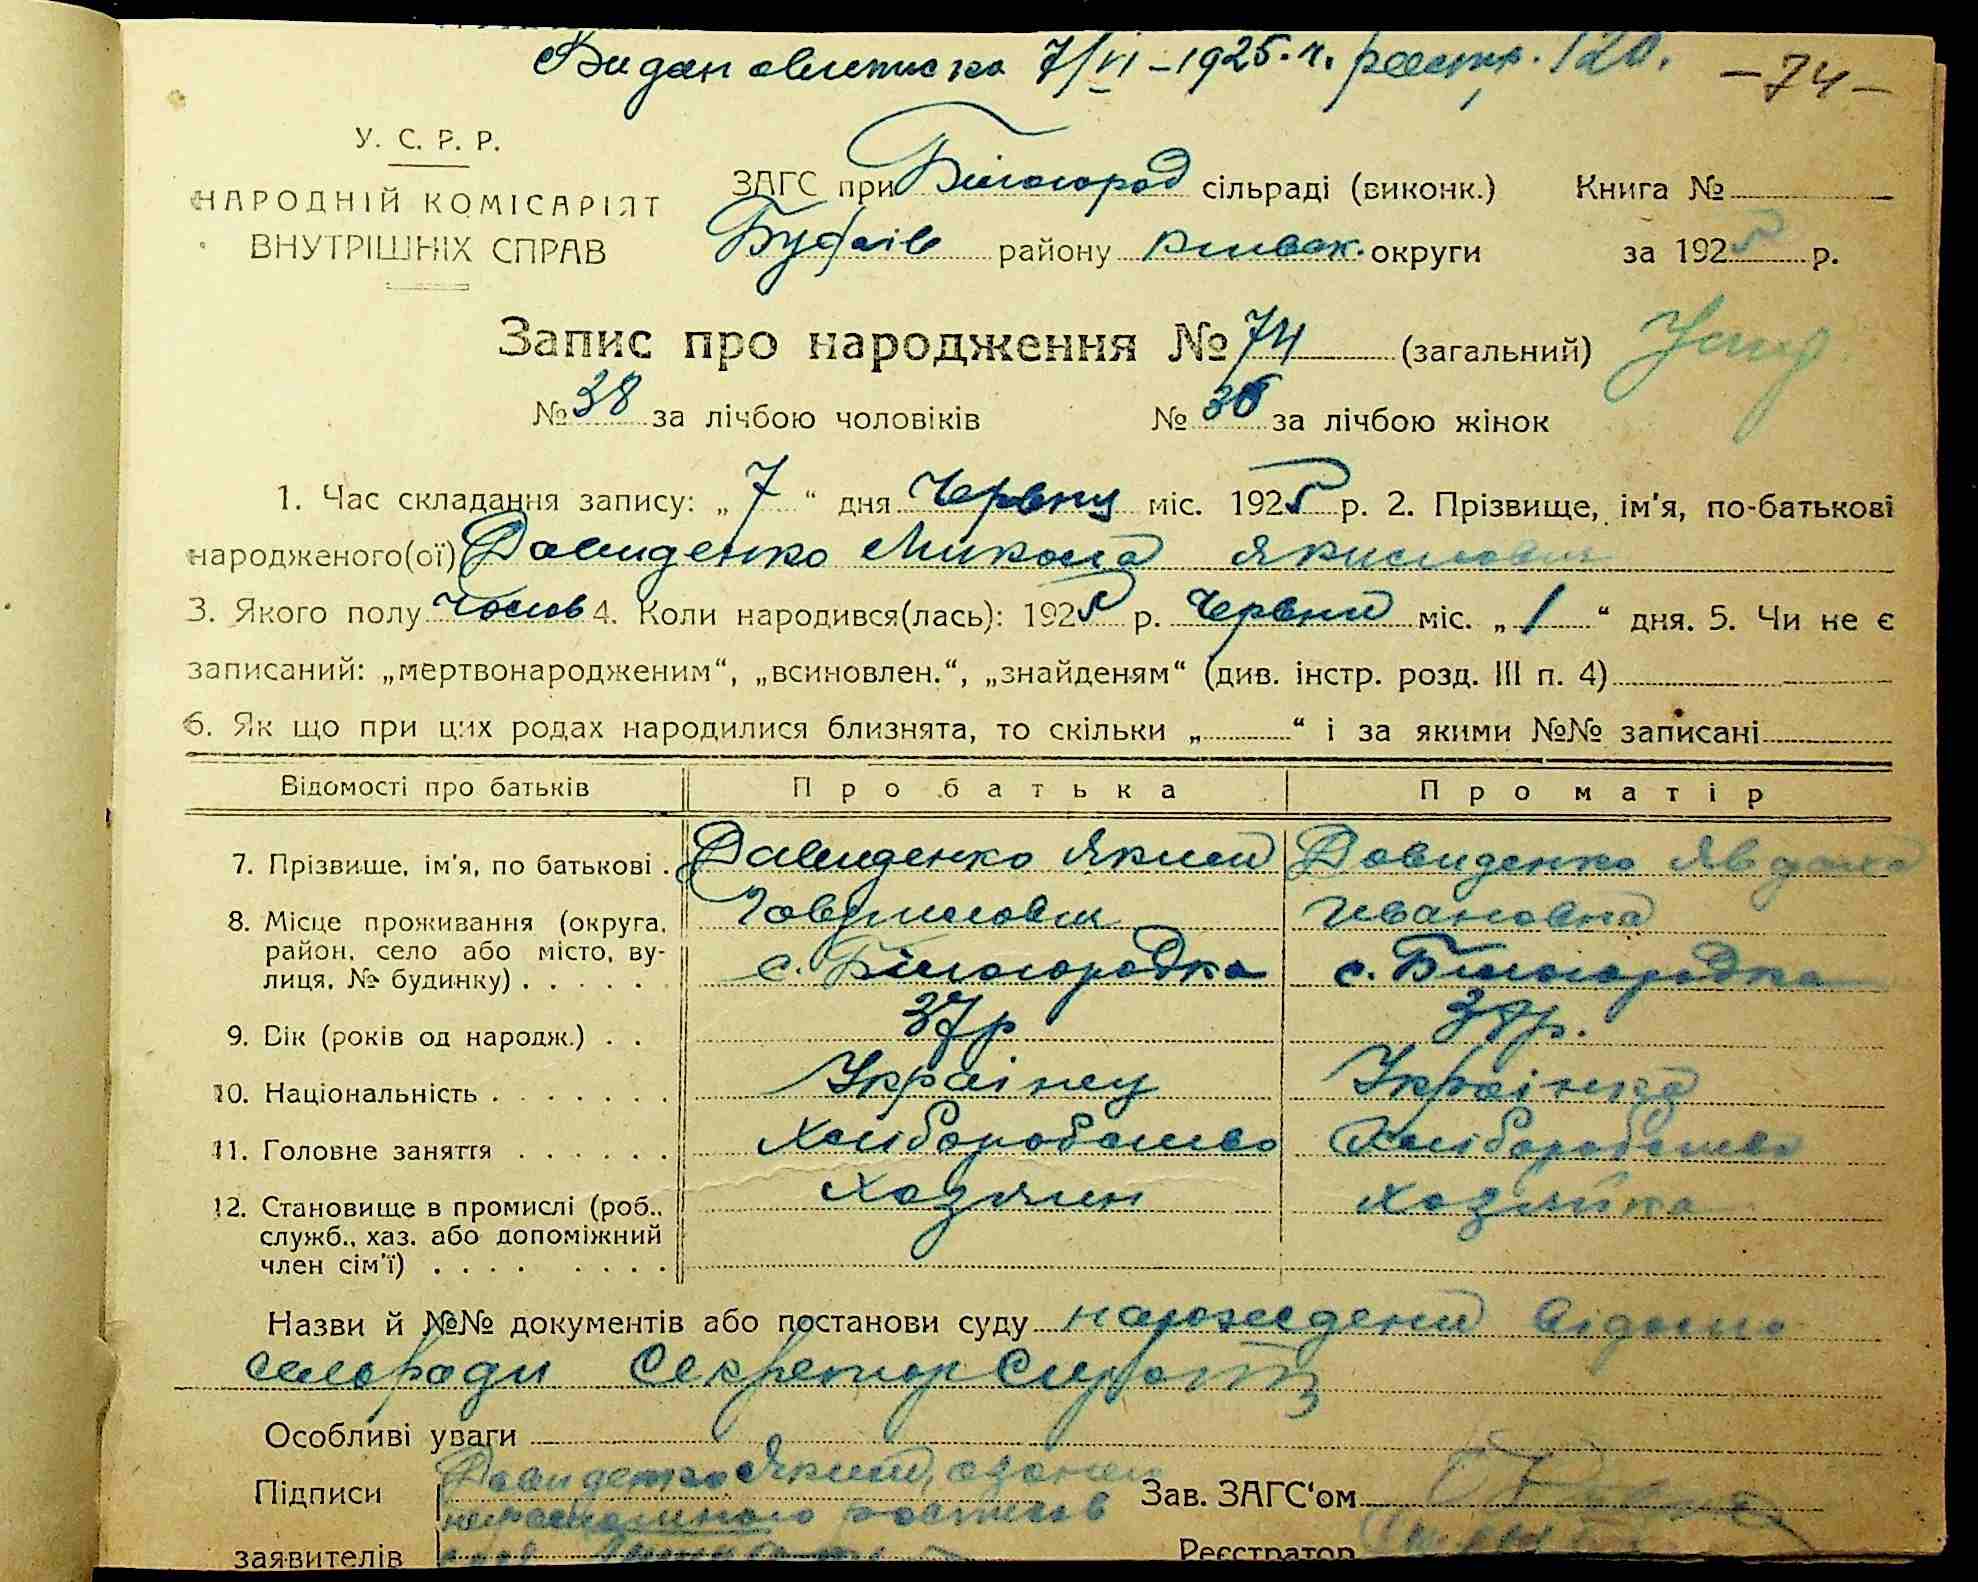 Видан выписка 7/VI – 1925. г. реестр. 120. – 74 –
У. С. Р. Р.
НАРОДНІЙ КОМІСАРІЯТ
ВНУТРІШНІХ СПРАВ
ЗАГС при Білогород сільраді (виконк.) Книга №
Будаїв району Київск. округи за 1925 р.
Запис про народження № 74 (загальний)
№ 38 за лічбою чоловіків № 36 за лічбою жінок
1. Час складання запису: „ 7 “ дня Червня міс. 1925 р. 2. Прізвище, ім'я, по-батькові
народженого(ої) Давиденко Микола Якимович
3. Якого полу Чолов 4. Коли народився(лась): 1925 р. Червня міс. „ 1 “ дня. 5. Чи не є
записаний: „мертвонародженим“, „всиновлен.“, „знайденям“ (див. інстр. розд. III п. 4)
6. Як що при цих родах народилися близнята, то скільки „ “ і за якими №№ записані
Відомості про батьків Про батька Про матір
7. Прізвище, ім'я, по батькові . Давиденко Яким Давиденко Явдоха
Гаврилович Ивановна
8. Місце проживання (округа,
район, село або місто, ву-
лиця, № будинку) . . . . . . с. Білогородка с. Білогородка
9. Вік (років од народж.) . . 37 р 37 р.
10. Національність . . . . . . . Українец Українка
11. Головне заняття . . . . . . Хліборобство Хліборобство
12. Становище в промислі (роб.,
служб., хаз. або допоміжний
член сім'ї) . . . . . . . . Хозяин Хозяйка
Назви й №№ документів або постанови суду
сельради Секретар
Особливі уваги
Підписи Давиденко Яким, Зав. ЗАГС'ом
заявителів Реєстратор